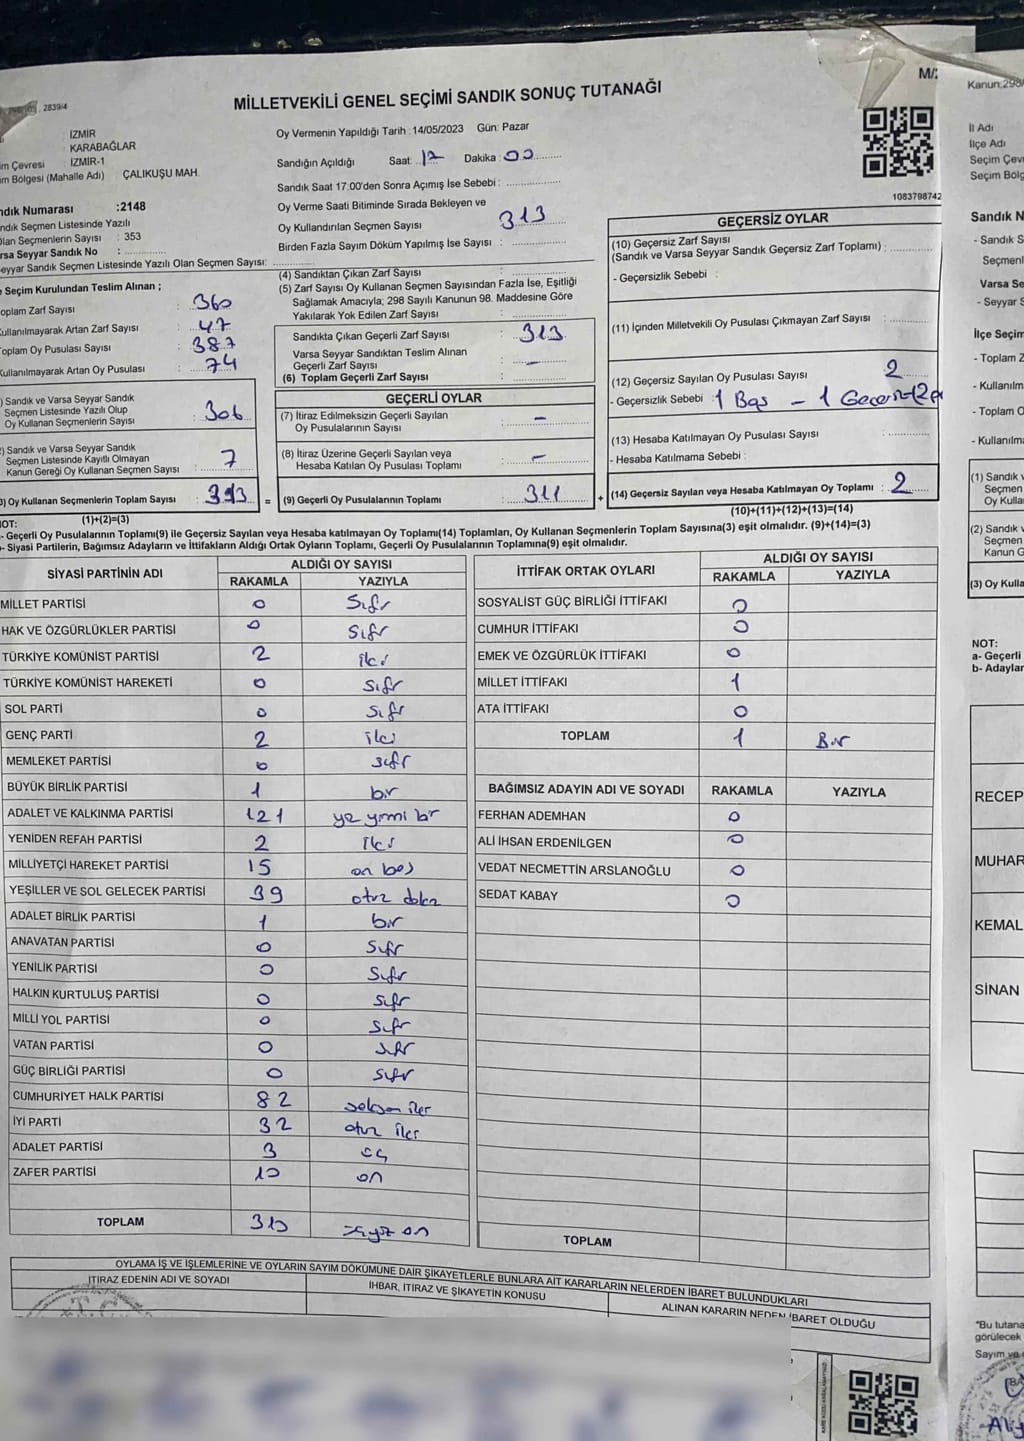 2839/4
MİLLETVEKİLİ GENEL SEÇİMİ SANDIK SONUÇ TUTANAĞI
M/2
: İZMİR
: KARABAĞLAR
im Çevresi : İZMİR-1
im Bölgesi (Mahalle Adı) : ÇALIKUŞU MAH.
ndık Numarası :2148
ndık Seçmen Listesinde Yazılı
Olan Seçmenlerin Sayısı : 353
rsa Seyyar Sandık No :
eyyar Sandık Seçmen Listesinde Yazılı Olan Seçmen Sayısı:
e Seçim Kurulundan Teslim Alınan ;
oplam Zarf Sayısı : 360
ullanılmayarak Artan Zarf Sayısı : 47
oplam Oy Pusulası Sayısı : 387
ullanılmayarak Artan Oy Pusulası : 74
) Sandık ve Varsa Seyyar Sandık
Seçmen Listesinde Yazılı Olup
Oy Kullanan Seçmenlerin Sayısı : 306
2) Sandık ve Varsa Seyyar Sandık
Seçmen Listesinde Kayıtlı Olmayan
Kanun Gereği Oy Kullanan Seçmen Sayısı : 7
3) Oy Kullanan Seçmenlerin Toplam Sayısı : 313 =
(1)+(2)=(3)
Oy Vermenin Yapıldığı Tarih :14/05/2023 Gün: Pazar
Sandığın Açıldığı Saat: 17 Dakika : 00
Sandık Saat 17:00'den Sonra Açımış İse Sebebi :
Oy Verme Saati Bitiminde Sırada Bekleyen ve
Oy Kullandırılan Seçmen Sayısı : 313
Birden Fazla Sayım Döküm Yapılmış İse Sayısı :
(4) Sandıktan Çıkan Zarf Sayısı :
(5) Zarf Sayısı Oy Kullanan Seçmen Sayısından Fazla İse, Eşitliği
Sağlamak Amacıyla; 298 Sayılı Kanunun 98. Maddesine Göre
Yakılarak Yok Edilen Zarf Sayısı :
Sandıkta Çıkan Geçerli Zarf Sayısı : 313
Varsa Seyyar Sandıktan Teslim Alınan
Geçerli Zarf Sayısı : -
(6) Toplam Geçerli Zarf Sayısı :
GEÇERLİ OYLAR
(7) İtiraz Edilmeksizin Geçerli Sayılan
Oy Pusulalarının Sayısı : -
(8) İtiraz Üzerine Geçerli Sayılan veya
Hesaba Katılan Oy Pusulası Toplamı : -
(9) Geçerli Oy Pusulalarının Toplamı : 311 +
1083798742
GEÇERSİZ OYLAR
(10) Geçersiz Zarf Sayısı
(Sandık ve Varsa Seyyar Sandık Geçersiz Zarf Toplamı) :
- Geçersizlik Sebebi :
(11) İçinden Milletvekili Oy Pusulası Çıkmayan Zarf Sayısı :
(12) Geçersiz Sayılan Oy Pusulası Sayısı : 2
- Geçersizlik Sebebi : 1 Boş - 1 Geçersiz
(13) Hesaba Katılmayan Oy Pusulası Sayısı :
- Hesaba Katılmama Sebebi :
(14) Geçersiz Sayılan veya Hesaba Katılmayan Oy Toplamı : 2
(10)+(11)+(12)+(13)=(14)
NOT:
- Geçerli Oy Pusulalarının Toplamı(9) ile Geçersiz Sayılan veya Hesaba katılmayan Oy Toplamı(14) Toplamları, Oy Kullanan Seçmenlerin Toplam Sayısına(3) eşit olmalıdır. (9)+(14)=(3)
- Siyasi Partilerin, Bağımsız Adayların ve İttifakların Aldığı Ortak Oyların Toplamı, Geçerli Oy Pusulalarının Toplamına(9) eşit olmalıdır.
SİYASİ PARTİNİN ADI ALDIĞI OY SAYISI
RAKAMLA YAZIYLA
MİLLET PARTİSİ 0 Sıfır
HAK VE ÖZGÜRLÜKLER PARTİSİ 0 Sıfır
TÜRKİYE KOMÜNİST PARTİSİ 2 iki
TÜRKİYE KOMÜNİST HAREKETİ 0 sıfır
SOL PARTİ 0 sıfır
GENÇ PARTİ 2 iki
MEMLEKET PARTİSİ 0 sıfır
BÜYÜK BİRLİK PARTİSİ 1 bir
ADALET VE KALKINMA PARTİSİ 121 yüz yirmi bir
YENİDEN REFAH PARTİSİ 2 iki
MİLLİYETÇİ HAREKET PARTİSİ 15 on beş
YEŞİLLER VE SOL GELECEK PARTİSİ 39 otuz dokuz
ADALET BİRLİK PARTİSİ 1 bir
ANAVATAN PARTİSİ 0 Sıfır
YENİLİK PARTİSİ 0 Sıfır
HALKIN KURTULUŞ PARTİSİ 0 sıfır
MİLLİ YOL PARTİSİ 0 sıfır
VATAN PARTİSİ 0 sıfır
GÜÇ BİRLİĞİ PARTİSİ 0 sıfır
CUMHURİYET HALK PARTİSİ 82 seksen iki
İYİ PARTİ 32 otuz iki
ADALET PARTİSİ 3 üç
ZAFER PARTİSİ 10 on
TOPLAM 310 üçyüz on
İTTİFAK ORTAK OYLARI ALDIĞI OY SAYISI
RAKAMLA YAZIYLA
SOSYALİST GÜÇ BİRLİĞİ İTTİFAKI 0
CUMHUR İTTİFAKI 0
EMEK VE ÖZGÜRLÜK İTTİFAKI 0
MİLLET İTTİFAKI 1
ATA İTTİFAKI 0
TOPLAM 1 Bir
BAĞIMSIZ ADAYIN ADI VE SOYADI RAKAMLA YAZIYLA
FERHAN ADEMHAN 0
ALİ İHSAN ERDENİLGEN 0
VEDAT NECMETTİN ARSLANOĞLU 0
SEDAT KABAY 0
TOPLAM
OYLAMA İŞ VE İŞLEMLERİNE VE OYLARIN SAYIM DÖKÜMÜNE DAİR ŞİKAYETLERLE BUNLARA AİT KARARLARIN NELERDEN İBARET BULUNDUKLARI
İTİRAZ EDENİN ADI VE SOYADI İHBAR, İTİRAZ VE ŞİKAYETİN KONUSU ALINAN KARARIN NEDEN İBARET OLDUĞU
T.C.
Kanun:298/
İl Adı
İlçe Adı
Seçim Çev
Seçim Bölg
Sandık N
- Sandık S
Seçmenl
Varsa Se
- Seyyar S
İlçe Seçim
- Toplam Z
- Kullanılm
- Toplam O
- Kullanılma
(1) Sandık v
Seçmen
Oy Kulla
(2) Sandık v
Seçmen
Kanun G
(3) Oy Kulla
NOT:
a- Geçerli
b- Adaylar
RECEP
MUHAR
KEMAL
SİNAN
"Bu tutana
görülecek
Sayım ve